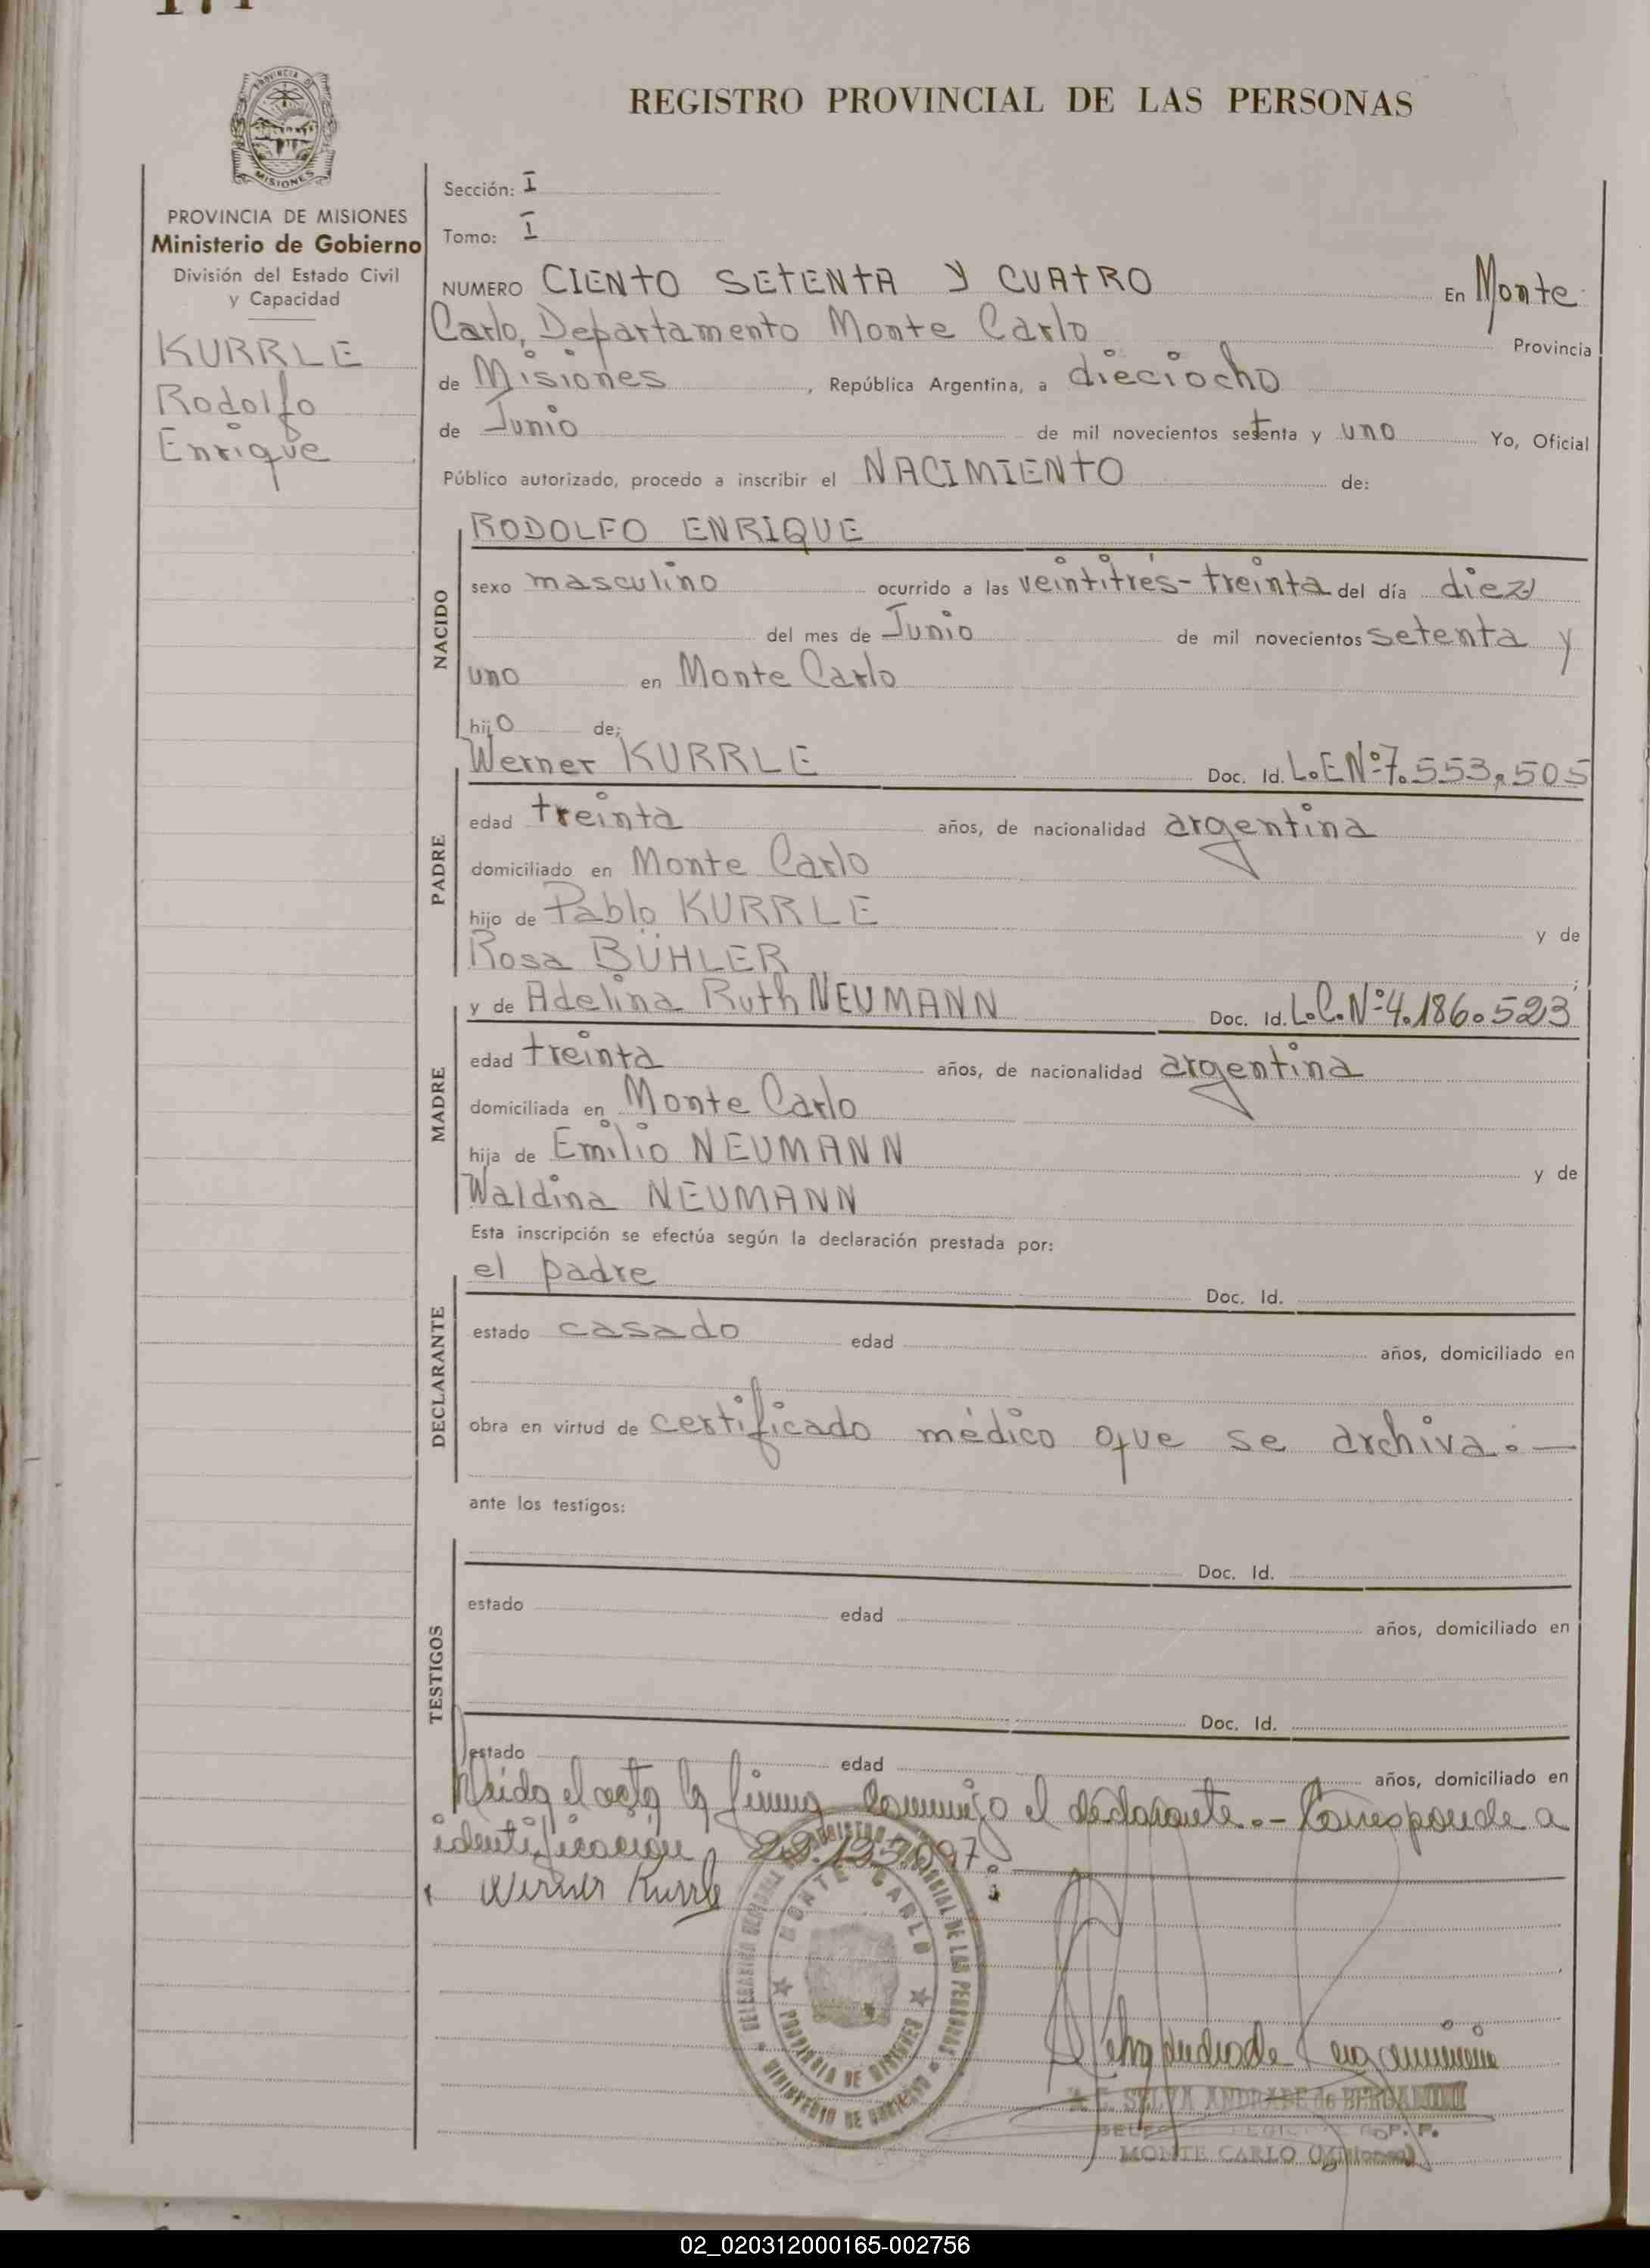 REGISTRO PROVINCIAL DE LAS PERSONAS
MISIONES
PROVINCIA DE MISIONES
Ministerio de Gobierno
División del Estado Civil
y Capacidad
KURRLE
Rodolfo
Enrique
Sección: I
Tomo: I
NUMERO CIENTO SETENTA Y CUATRO En Monte
Carlo, Departamento Monte Carlo Provincia
de Misiones, República Argentina, a dieciocho
de Junio de mil novecientos setenta y uno Yo, Oficial
Público autorizado, procedo a inscribir el NACIMIENTO de:
NACIDO
RODOLFO ENRIQUE
sexo masculino ocurrido a las veintitrés-treinta del día diez
del mes de Junio de mil novecientos setenta y
uno en Monte Carlo
hijo de;
PADRE
Werner KURRLE Doc. Id. L.E.Nº7.553.505
edad treinta años, de nacionalidad argentina
domiciliado en Monte Carlo
hijo de Pablo KURRLE y de
Rosa BÜHLER ;
MADRE
y de Adelina Ruth NEUMANN Doc. Id. L.C.Nº4.186.523
edad treinta años, de nacionalidad argentina
domiciliada en Monte Carlo
hija de Emilio NEUMANN y de
Waldina NEUMANN
Esta inscripción se efectúa según la declaración prestada por:
DECLARANTE
el padre Doc. Id.
estado casado edad años, domiciliado en
obra en virtud de certificado médico que se archiva.—
ante los testigos:
TESTIGOS
Doc. Id.
estado edad años, domiciliado en
Doc. Id.
estado edad años, domiciliado en
Leída el acta la firma conmigo el declarante.- Corresponde a
identificación
Werner Kurrle
MONTE CARLO
PROVINCIA DE MISIONES
MINISTERIO DE GOBIERNO
SELVA ANDRADE de BERGAMINI
MONTE CARLO (Misiones)
02_020312000165-002756